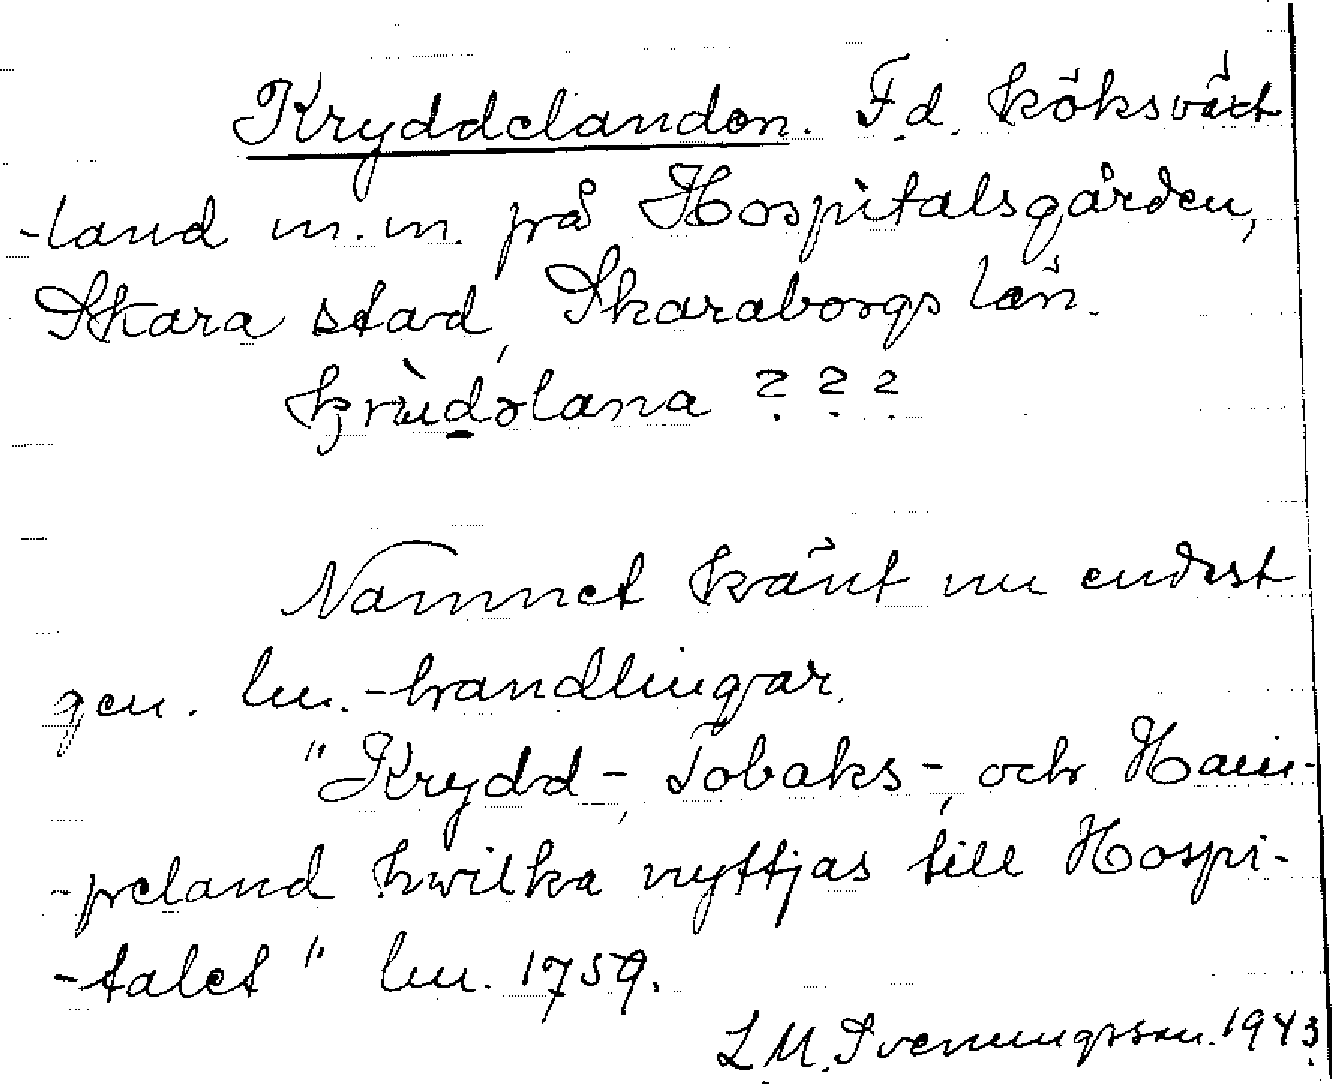 Kryddelanden. F.d. köksväxt
-land m.m. på Hospitalsgården,
Skara stad, Skaraborgs län.
krùdəlana ? ? ?
Namnet känt nu endast
gen. lm.-handlingar.
"Krydd-, Tobaks-, och Ham-
-peland hwilka nyttjas till Hospi-
-talet" lm. 1759.
L. M. Svenungsson. 1943.